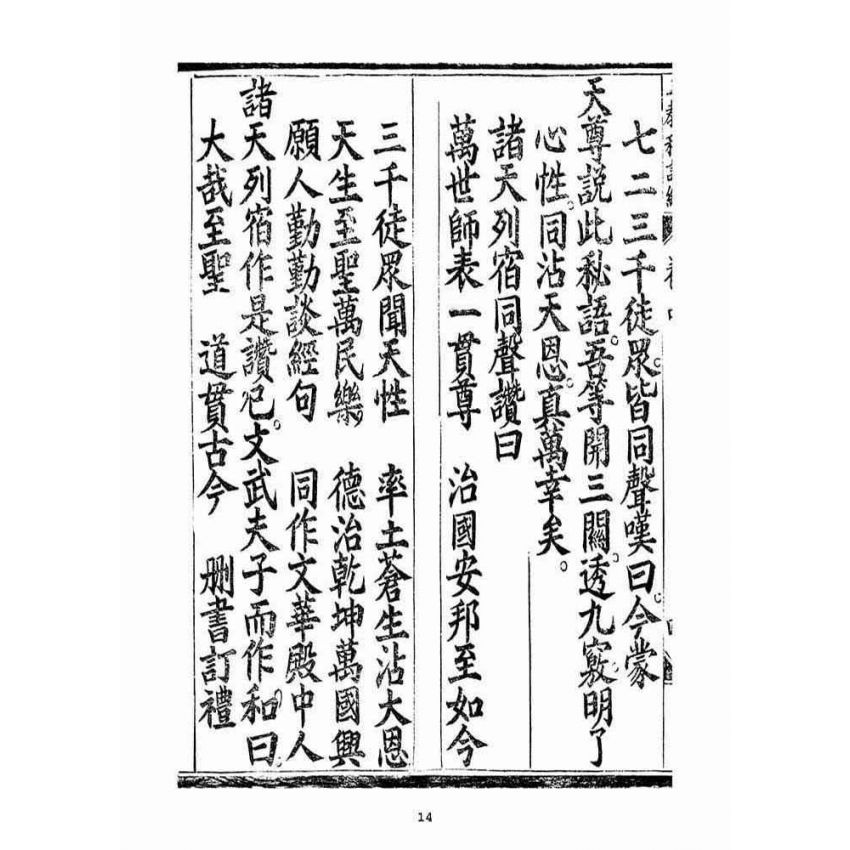 七二三千徒眾。皆同聲嘆曰。今蒙
天尊説此秘語。吾等開三關。透九竅。明了
心性。同沾天恩。真萬幸矣。
諸天列宿同聲讚曰
萬世師表一貫尊　治國安邦至如今
三千徒眾聞天性　率土蒼生沾大恩
天生至聖萬民樂　德治乾坤萬國興
願人勤勤談經句　同作文華殿中人
諸天列宿作是讚已。文武夫子而作和曰
大哉至聖　道貫古今　刪書訂禮
14